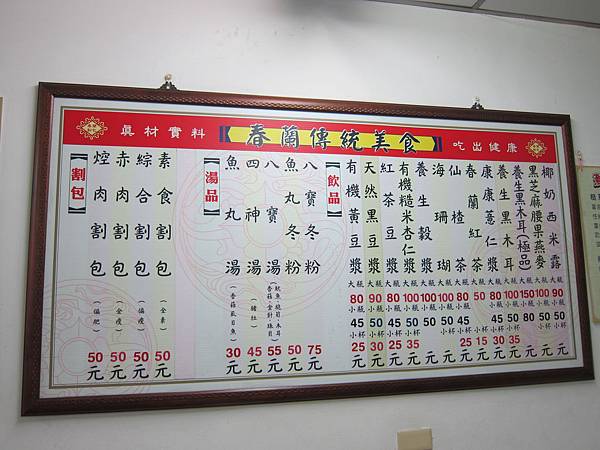 眞材實料
【春蘭傳統美食】
吃出健康
【割包】
焢肉割包(偏肥)50元
赤肉割包(全瘦)50元
綜合割包(偏瘦)50元
素食割包(全素)50元
【湯品】
魚丸湯(香菇虱目魚)30元
四神湯(豬肚)45元
八寶湯 55元
魚丸冬粉 50元
八寶冬粉 75元
【飲品】
有機黃豆漿 大瓶80 小瓶45 小杯25元
天然黑豆漿 大瓶90 小瓶50 小杯30元
紅茶豆漿 大瓶80 小瓶45 小杯25元
有機糙米杏仁漿 大瓶100 小瓶50 小杯35元
養生穀漿 大瓶100 小瓶50元
海珊瑚 大瓶100 小瓶50元
仙楂茶 大瓶80 小瓶45 小杯25元
春蘭紅茶 大瓶50 小杯15元
康康薏仁漿 大瓶80 小瓶45 小杯30元
養生黑木耳 大瓶100 小瓶50 小杯35元
養生黑木耳(極品) 大瓶150 小瓶80元
黑芝麻腰果燕麥 大瓶100 小瓶50元
椰奶西米露 大瓶90 小瓶50元